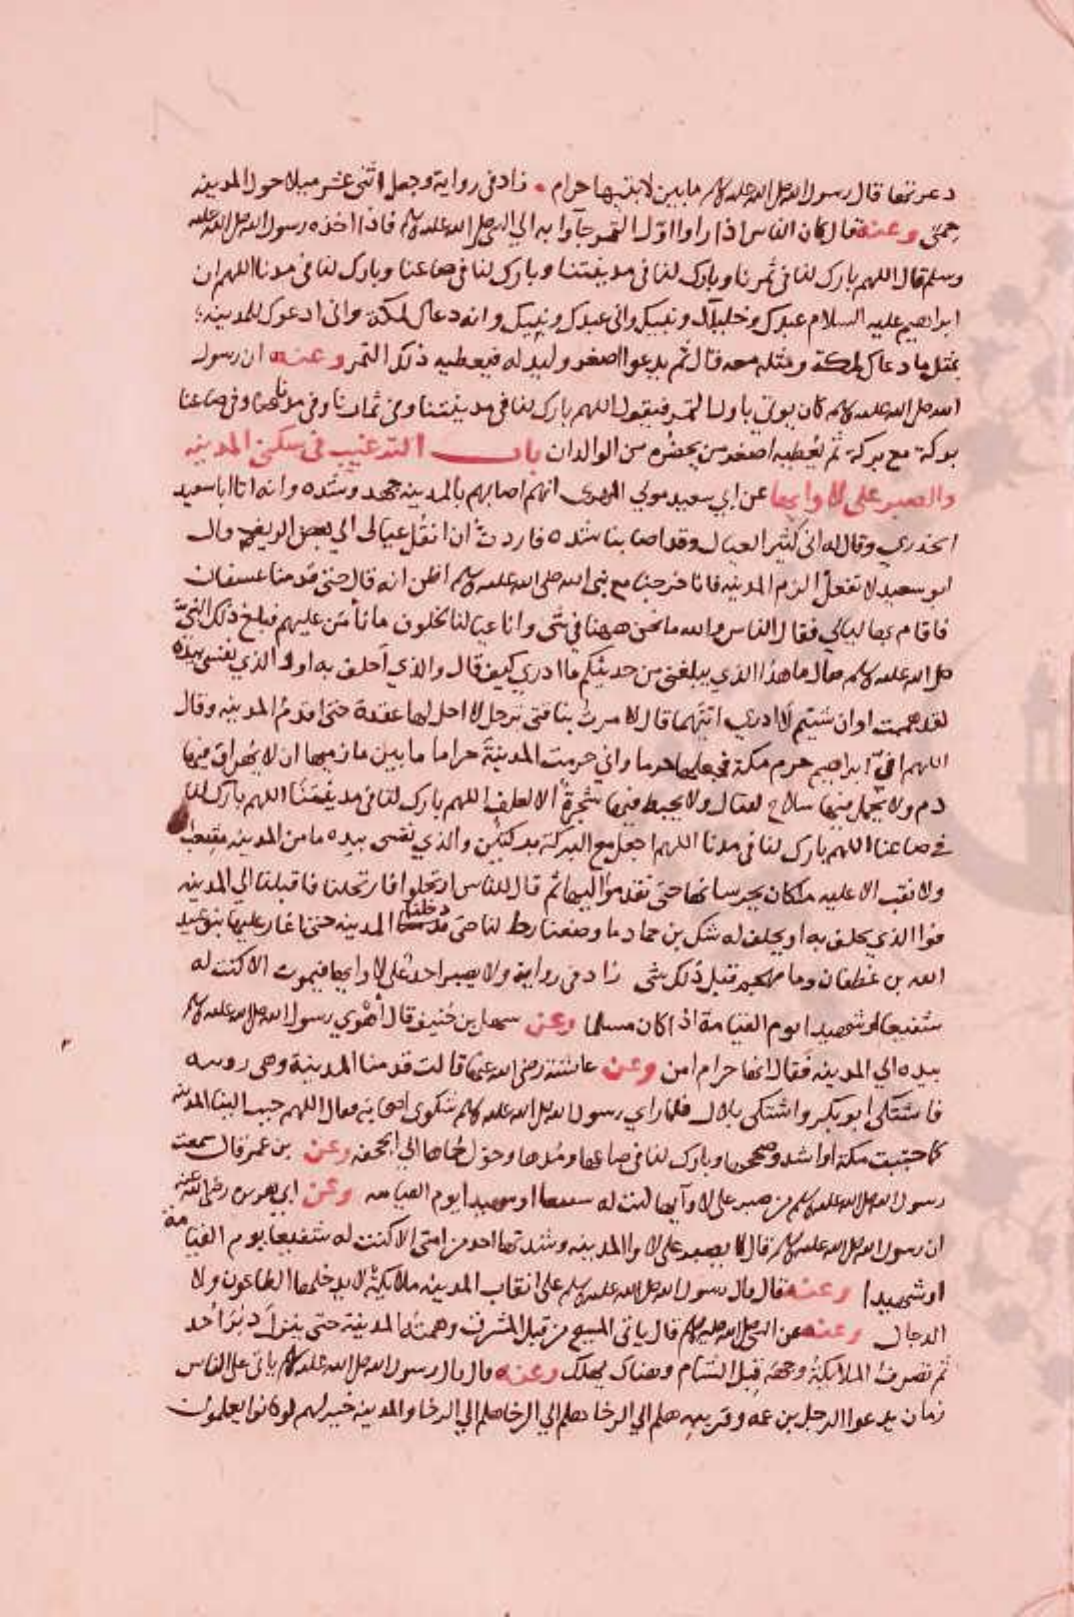 دعرتها قال رسول الله صلى الله عليه وسلم ما بين لابتيها حرام • زاد في رواية وجعل اثنى عشر ميلا حول المدينه
حمى وعنه قال كان الناس اذا راوا اول الثمر جآوا به الي النبي صلى الله عليه وسلم فاذا اخذه رسول الله صلى الله عليه
وسلم قال اللهم بارك لنا في ثمرنا وبارك لنا في مدينتنا وبارك لنا في صاعنا وبارك لنا في مدنا اللهم ان
ابراهيم عليه السلام عبدك وخليلك ونبيك واني عبدك ونبيك وانه دعاك لمكة واني ادعوك للمدينه
بمثل ما دعاك لمكة ومثله معه قال ثم يدعوا اصغر وليد له فيعطيه ذلك الثمر وعنه ان رسول
الله صلى الله عليه وسلم كان يوتي باول الثمر فيقول اللهم بارك لنا في مدينتنا وفي ثمارنا وفي مدنا وفي صاعنا
بركة مع بركة ثم يعطيه اصغر من يحضره من الوالدان باب الترغيب في سكنى المدينه
والصبر على لاوايها عن ابي سعيد مولي المهري انهم اصابهم بالمدينه جهد وشده وانه اتا ابا سعيد
الخدري وقال له اني كثير العيال وقد اصابنا شده فاردت ان انقل عيالى الي بعض الريف قال
ابو سعيد لا تفعل الزم المدينه فانا خرجنا مع نبى الله صلى الله عليه وسلم اظن انه قال حتى قدمنا عسفان
فاقام بها ليالي فقال الناس والله ما نحن ههنا في شى وان عيالنا لخلوف ما نأمن عليهم فبلغ ذلك النبي
صلى الله عليه وسلم فقال ما هذا الذي يبلغني من حديثكم ما ادري كيف قال والذي احلف به او الذي نفسى بيده
لقد هممت او ان شيتم لا ادري ايتهما قال لامرت بناقتى ترحل لا احل لها عقدة حتى اقدم المدينه وقال
اللهم ان ابراهيم حرم مكة فجعلها حرما واني حرمت المدينة حراما ما بين مازميها ان لا يهراق فيها
دم ولا يحمل فيها سلاح لقتال ولا يخبط فيها شجرة الا لعلف اللهم بارك لنا في مدينتنا اللهم بارك لنا
في صاعنا اللهم بارك لنا في مدنا اللهم اجعل مع البركة بركتين والذي نفسى بيده ما من المدينه شعب
ولا نقب الا عليه ملكان يحرسانها حتى تقدموا اليها ثم قال للناس ارتحلوا فارتحلنا فاقبلنا الي المدينه
فوالذي يحلف به او يحلف له شك بن حماد ما وضعنا رحالنا حتى دخلنا المدينه حتى اغار علينا بنو عبد
الله بن غطفان وما يهيجهم قبل ذلك شى زاد في رواية ولا يصبر احد على لاوايها فيموت الا كنت له
شفيعا او شهيدا يوم القيامة اذا كان مسلما وعن سهل بن حنيف قال اهوي رسول الله صلى الله عليه وسلم
بيده الي المدينه فقال انها حرام امن وعن عائشة رضى الله عنها قالت قدمنا المدينة وهى وبيه
فاشتكى ابو بكر واشتكى بلال فلما راي رسول الله صلى الله عليه وسلم شكوى اصحابه فقال اللهم حبب الينا المدينه
كما حببت مكة او اشد وصححها وبارك لنا في صاعها ومدها وحول حماها الي الجحفه وعن بن عمر قال سمعت
رسول الله صلى الله عليه وسلم من صبر على لاوآيها كنت له شفيعا او شهيدا يوم القيامه وعن ابي هريره رضى الله عنه
ان رسول الله صلى الله عليه وسلم قال لا يصبر على لاوا المدينه وشدتها احد من امتى الا كنت له شفيعا يوم القيامة
او شهيدا وعنه قال قال رسول الله صلى الله عليه وسلم على انقاب المدينه ملائكة لا يدخلها الطاعون ولا
الدجال وعنه عن النبي صلى الله عليه وسلم قال ياتى المسيح من قبل المشرق وهمته المدينة حتى ينزل دبر احد
ثم تصرف الملائكة وجهه قبل الشام وهناك يهلك وعنه قال قال رسول الله صلى الله عليه وسلم ياتى على الناس
زمان يدعوا الرجل بن عمه وقريبه هلم الي الرخا هلم الي الرخا هلم الي الرخا والمدينه خير لهم لو كانوا يعلمون